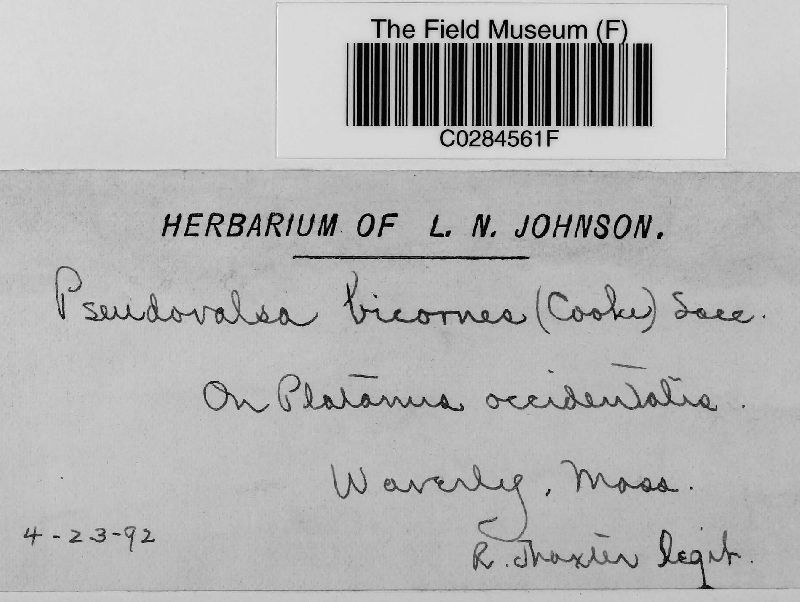 The Field Museum (F)
C0284561F
HERBARIUM OF L. N. JOHNSON.
Pseudovalsa bicornes (Cooke) Sacc.
On Platanus occidentalis.
Waverly, Mass.
4-23-92
R. Thaxter legit.